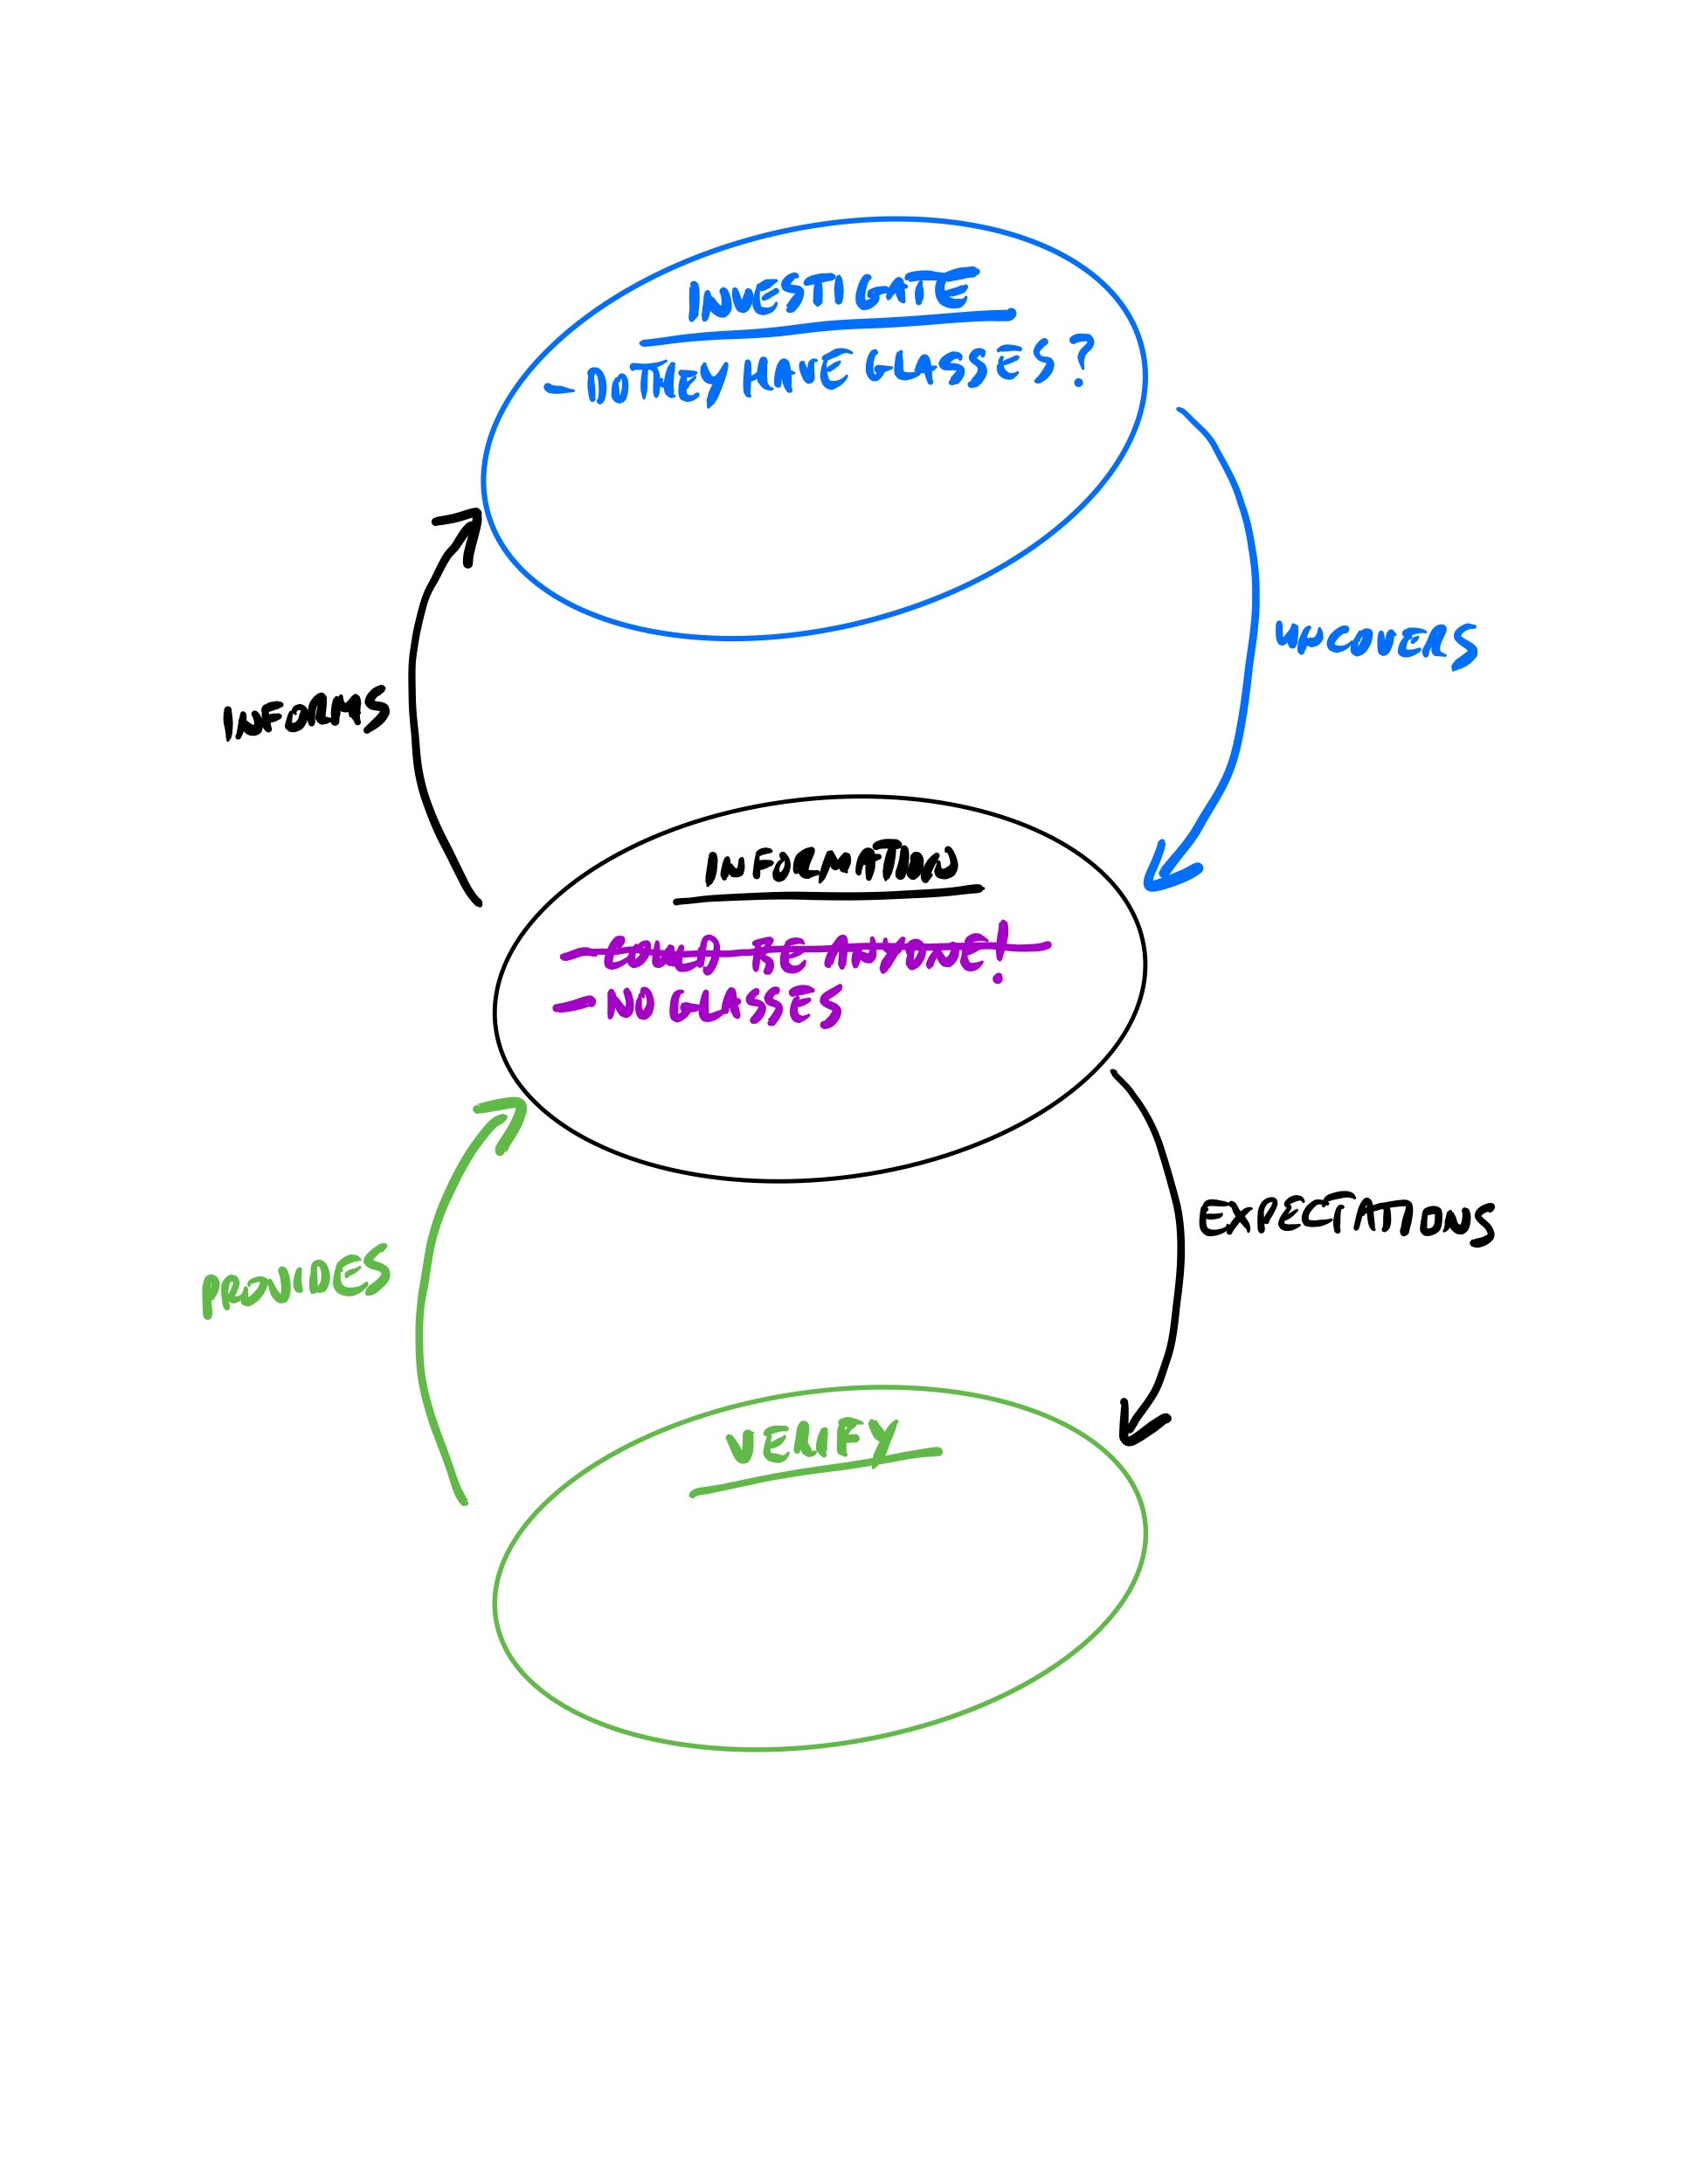 INVESTIGATE
- DO THEY HAVE GLASSES?
UNCOVERS
INFORMS
INFORMATION
- COULD BE ANYONE!
- NO GLASSES
EXPECTATIONS
PROVIDES
VERIFY